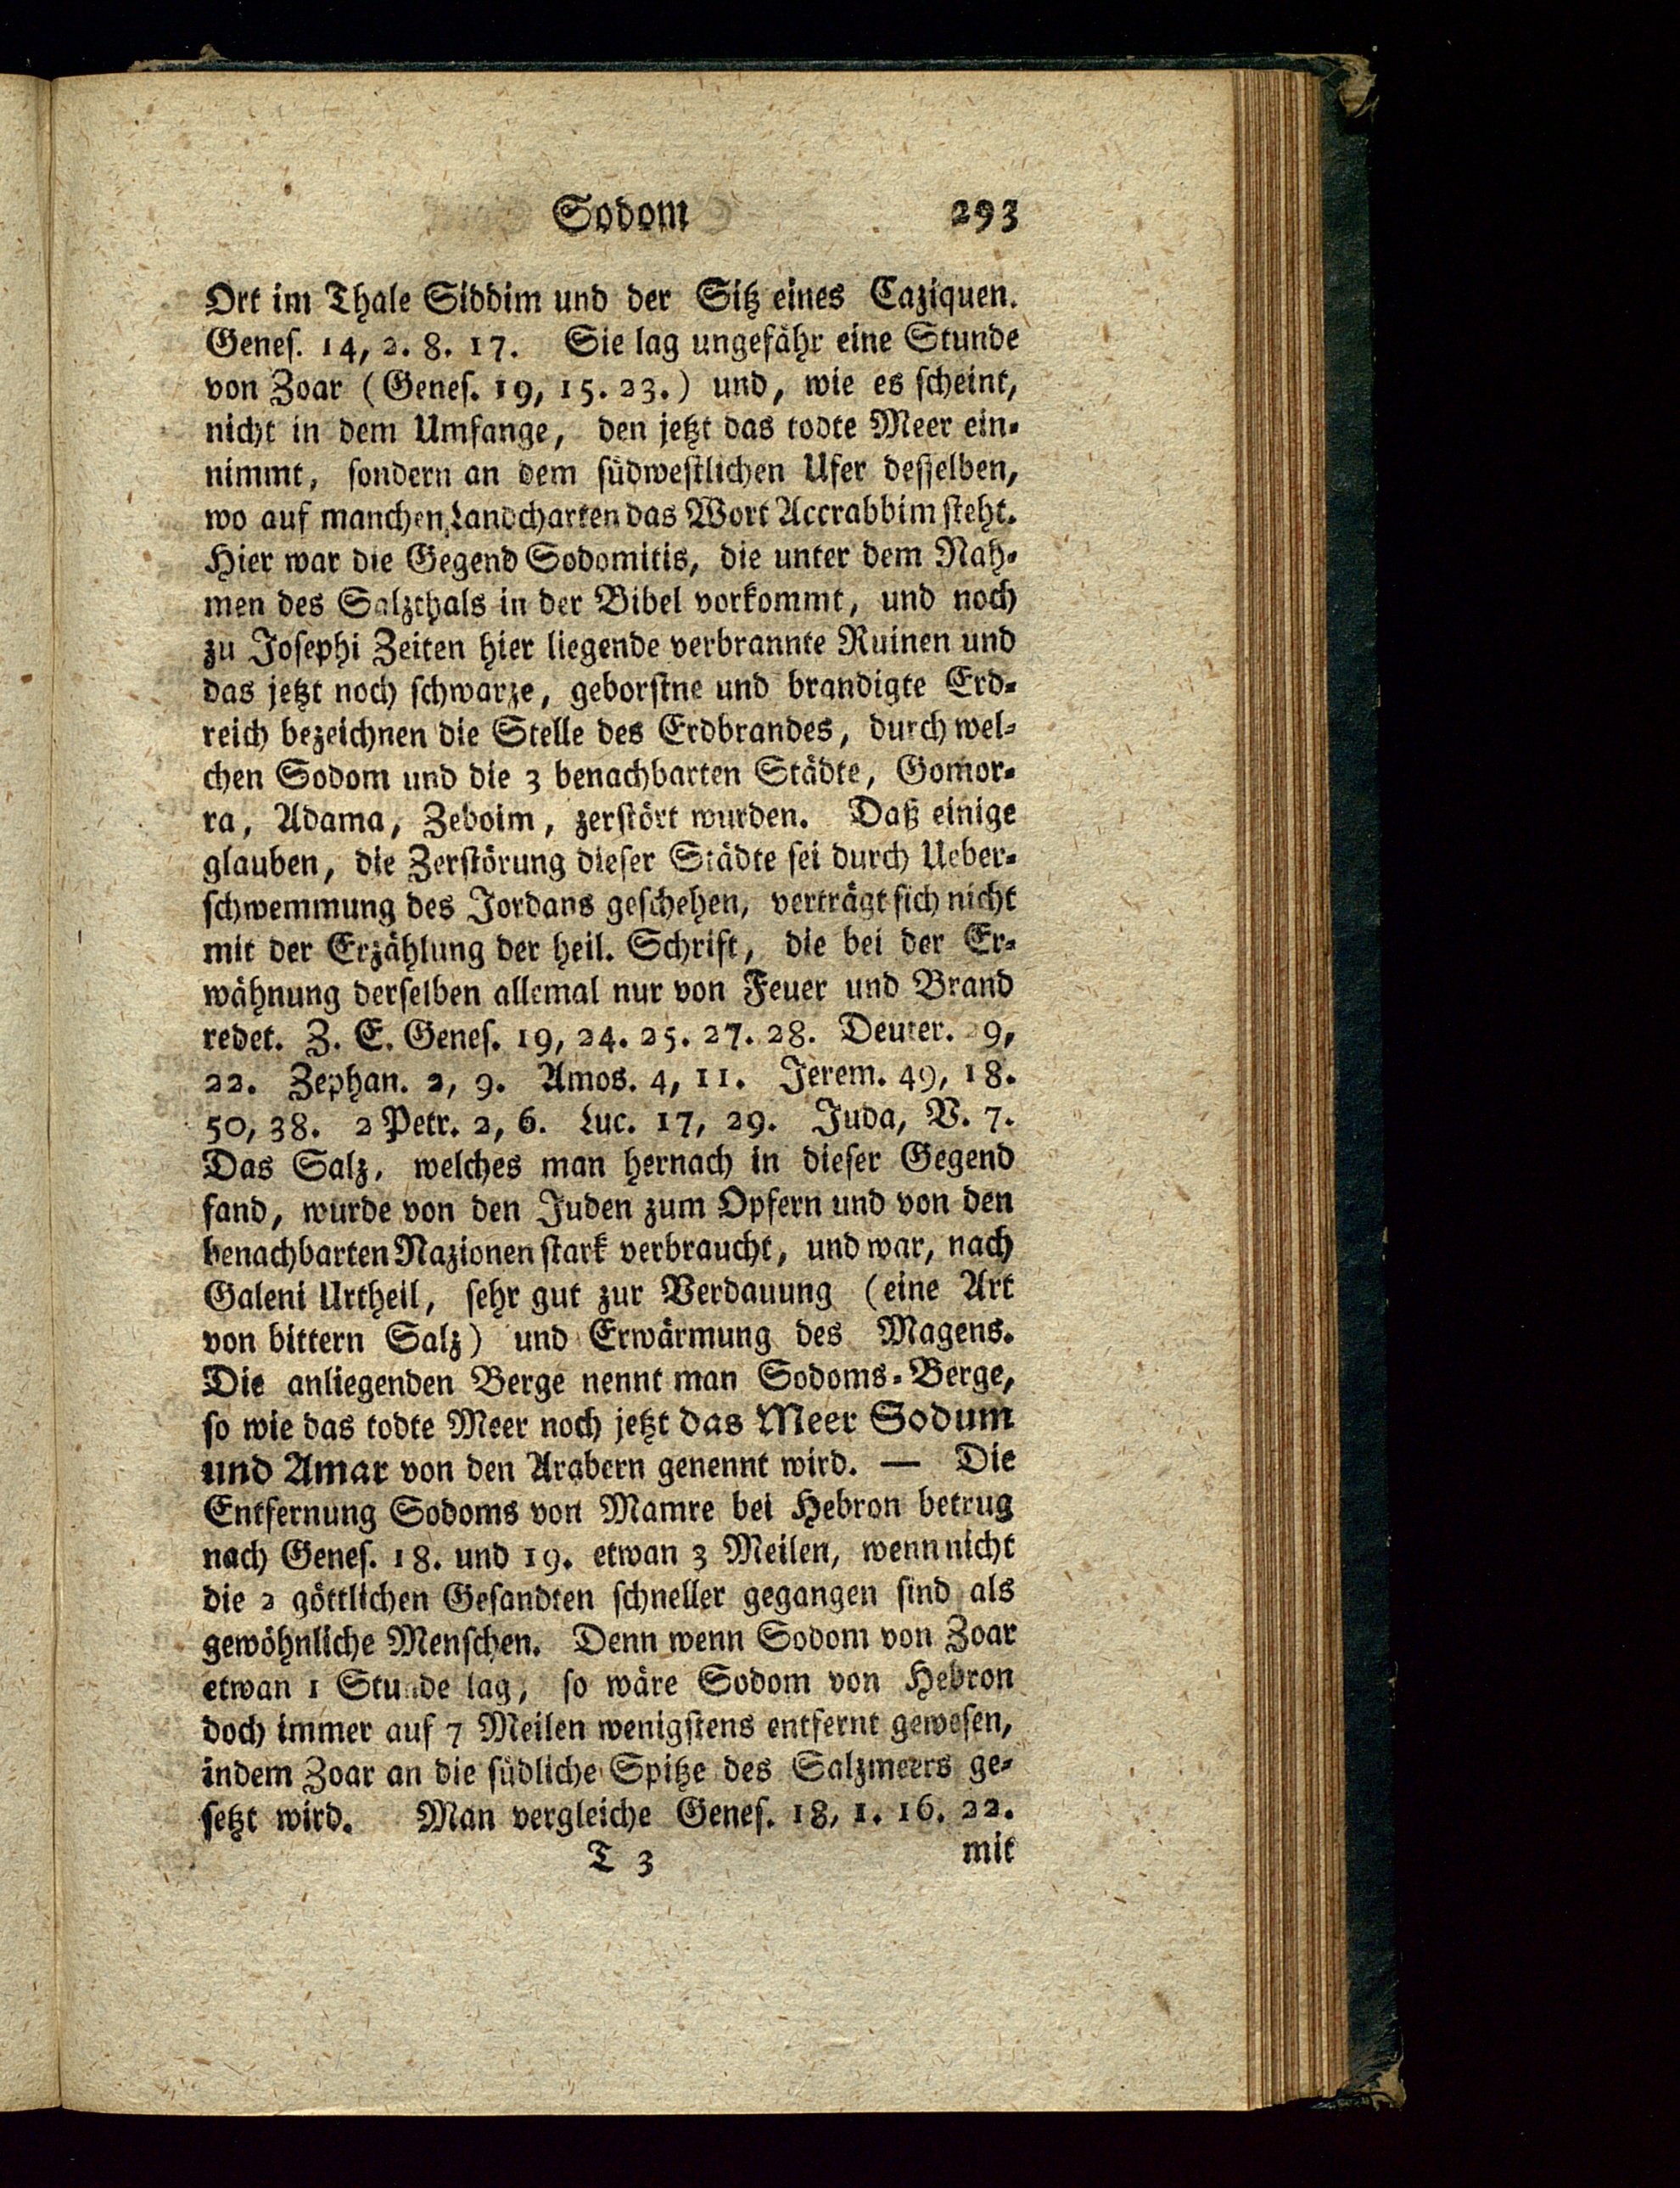 Sodom 293
Ort im Thale Siddim und der Sitz eines Caziquen.
Genes. 14, 2. 8. 17. Sie lag ungefähr eine Stunde
von Zoar (Genes. 19, 15. 23.) und, wie es scheint,
nicht in dem Umfange, den jetzt das todte Meer ein-
nimmt, sondern an dem südwestlichen Ufer desselben,
wo auf manchen Landcharten das Wort Accrabbim steht.
Hier war die Gegend Sodomitis, die unter dem Nah-
men des Salzthals in der Bibel vorkommt, und noch
zu Josephi Zeiten hier liegende verbrannte Ruinen und
das jetzt noch schwarze, geborstne und brandigte Erd-
reich bezeichnen die Stelle des Erdbrandes, durch wel-
chen Sodom und die 3 benachbarten Städte, Gomor-
ra, Adama, Zeboim, zerstört wurden. Daß einige
glauben, die Zerstörung dieser Städte sei durch Ueber-
schwemmung des Jordans geschehen, verträgt sich nicht
mit der Erzählung der heil. Schrift, die bei der Er-
wähnung derselben allemal nur von Feuer und Brand
redet. Z. E. Genes. 19, 24. 25. 27. 28. Deuter. 29,
22. Zephan. 2, 9. Amos. 4, 11. Jerem. 49, 18.
50, 38. 2 Petr. 2, 6. Luc. 17, 29. Juda, V. 7.
Das Salz, welches man hernach in dieser Gegend
fand, wurde von den Juden zum Opfern und von den
benachbarten Nazionen stark verbraucht, und war, nach
Galeni Urtheil, sehr gut zur Verdauung (eine Art
von bittern Salz) und Erwärmung des Magens.
Die anliegenden Berge nennt man Sodoms-Berge,
so wie das todte Meer noch jetzt das Meer Sodum
und Amar von den Arabern genennt wird. — Die
Entfernung Sodoms von Mamre bei Hebron betrug
nach Genes. 18. und 19. etwan 3 Meilen, wenn nicht
die 2 göttlichen Gesandten schneller gegangen sind als
gewöhnliche Menschen. Denn wenn Sodom von Zoar
etwan 1 Stunde lag, so wäre Sodom von Hebron
doch immer auf 7 Meilen wenigstens entfernt gewesen,
indem Zoar an die südliche Spitze des Salzmeers ge-
setzt wird. Man vergleiche Genes. 18, 1. 16. 22.
T 3 mit